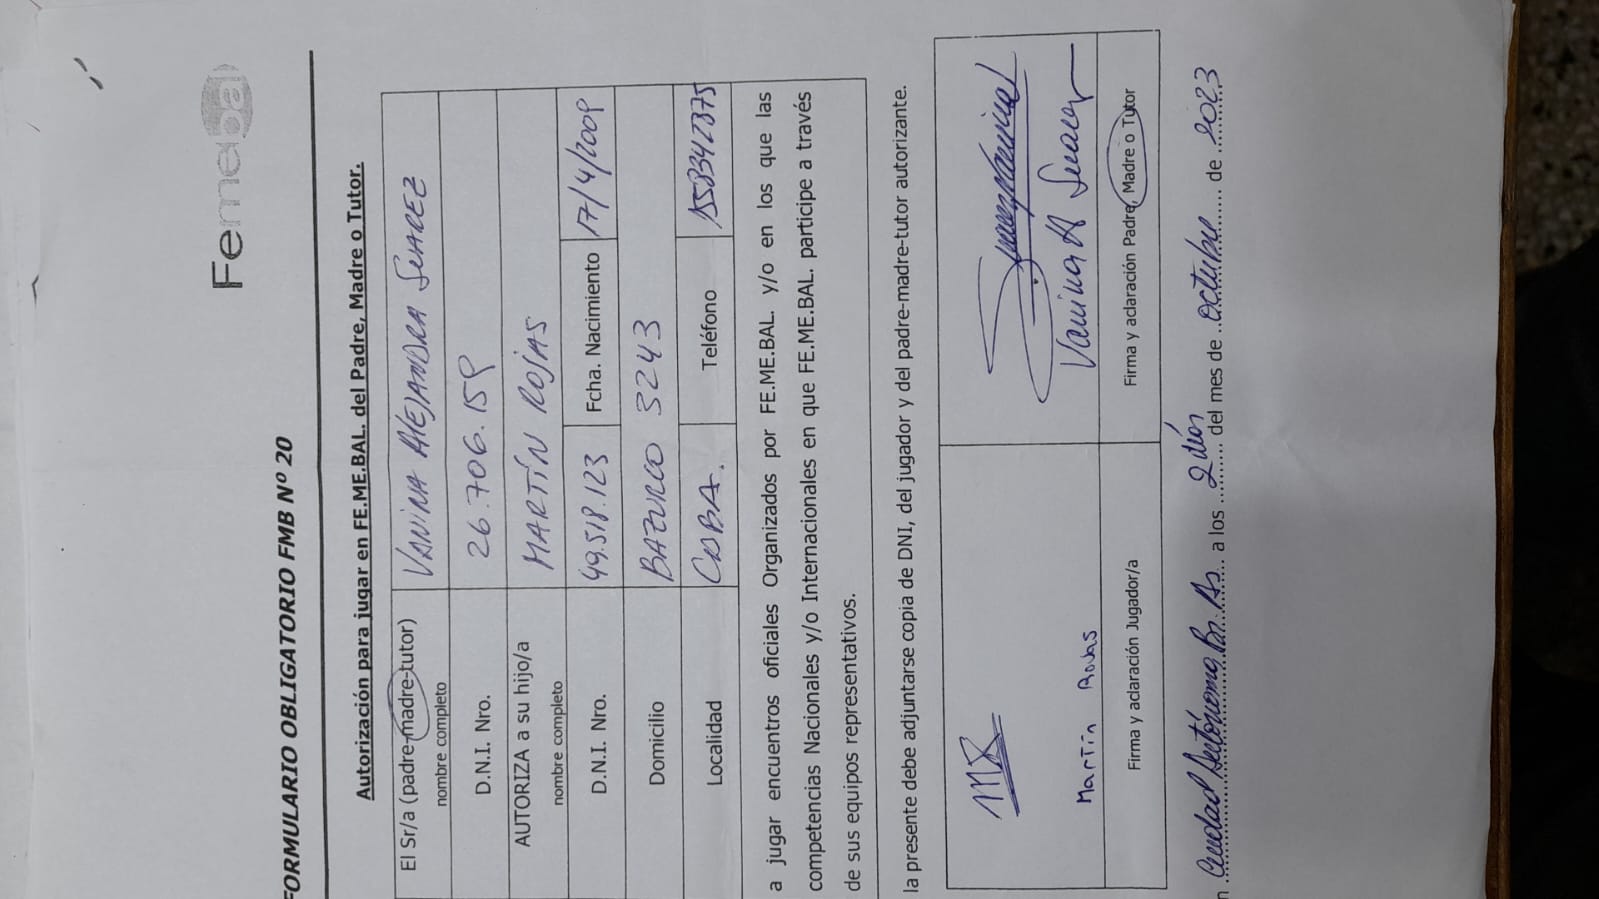 Femebal
FORMULARIO OBLIGATORIO FMB Nº 20
Autorización para jugar en FE.ME.BAL. del Padre, Madre o Tutor.
El Sr/a (padre-madre-tutor) VANINA AlEJANDRA SUAREZ
nombre completo
D.N.I. Nro. 26.706.159
AUTORIZA a su hijo/a MARTÍN ROJAS
nombre completo
D.N.I. Nro. 49.518.123 Fcha. Nacimiento 17/4/2009
Domicilio BAZURCO 3243
Localidad CABA. Teléfono 1558342375
a jugar encuentros oficiales Organizados por FE.ME.BAL. y/o en los que las
competencias Nacionales y/o Internacionales en que FE.ME.BAL. participe a través
de sus equipos representativos.
la presente debe adjuntarse copia de DNI, del jugador y del padre-madre-tutor autorizante.
MR
Martín Rojas Vanina A Suarez
Firma y aclaración Jugador/a Firma y aclaración Padre, Madre o Tutor
n Ciudad Autónoma Bs. As. a los 2 días del mes de octubre de 2023